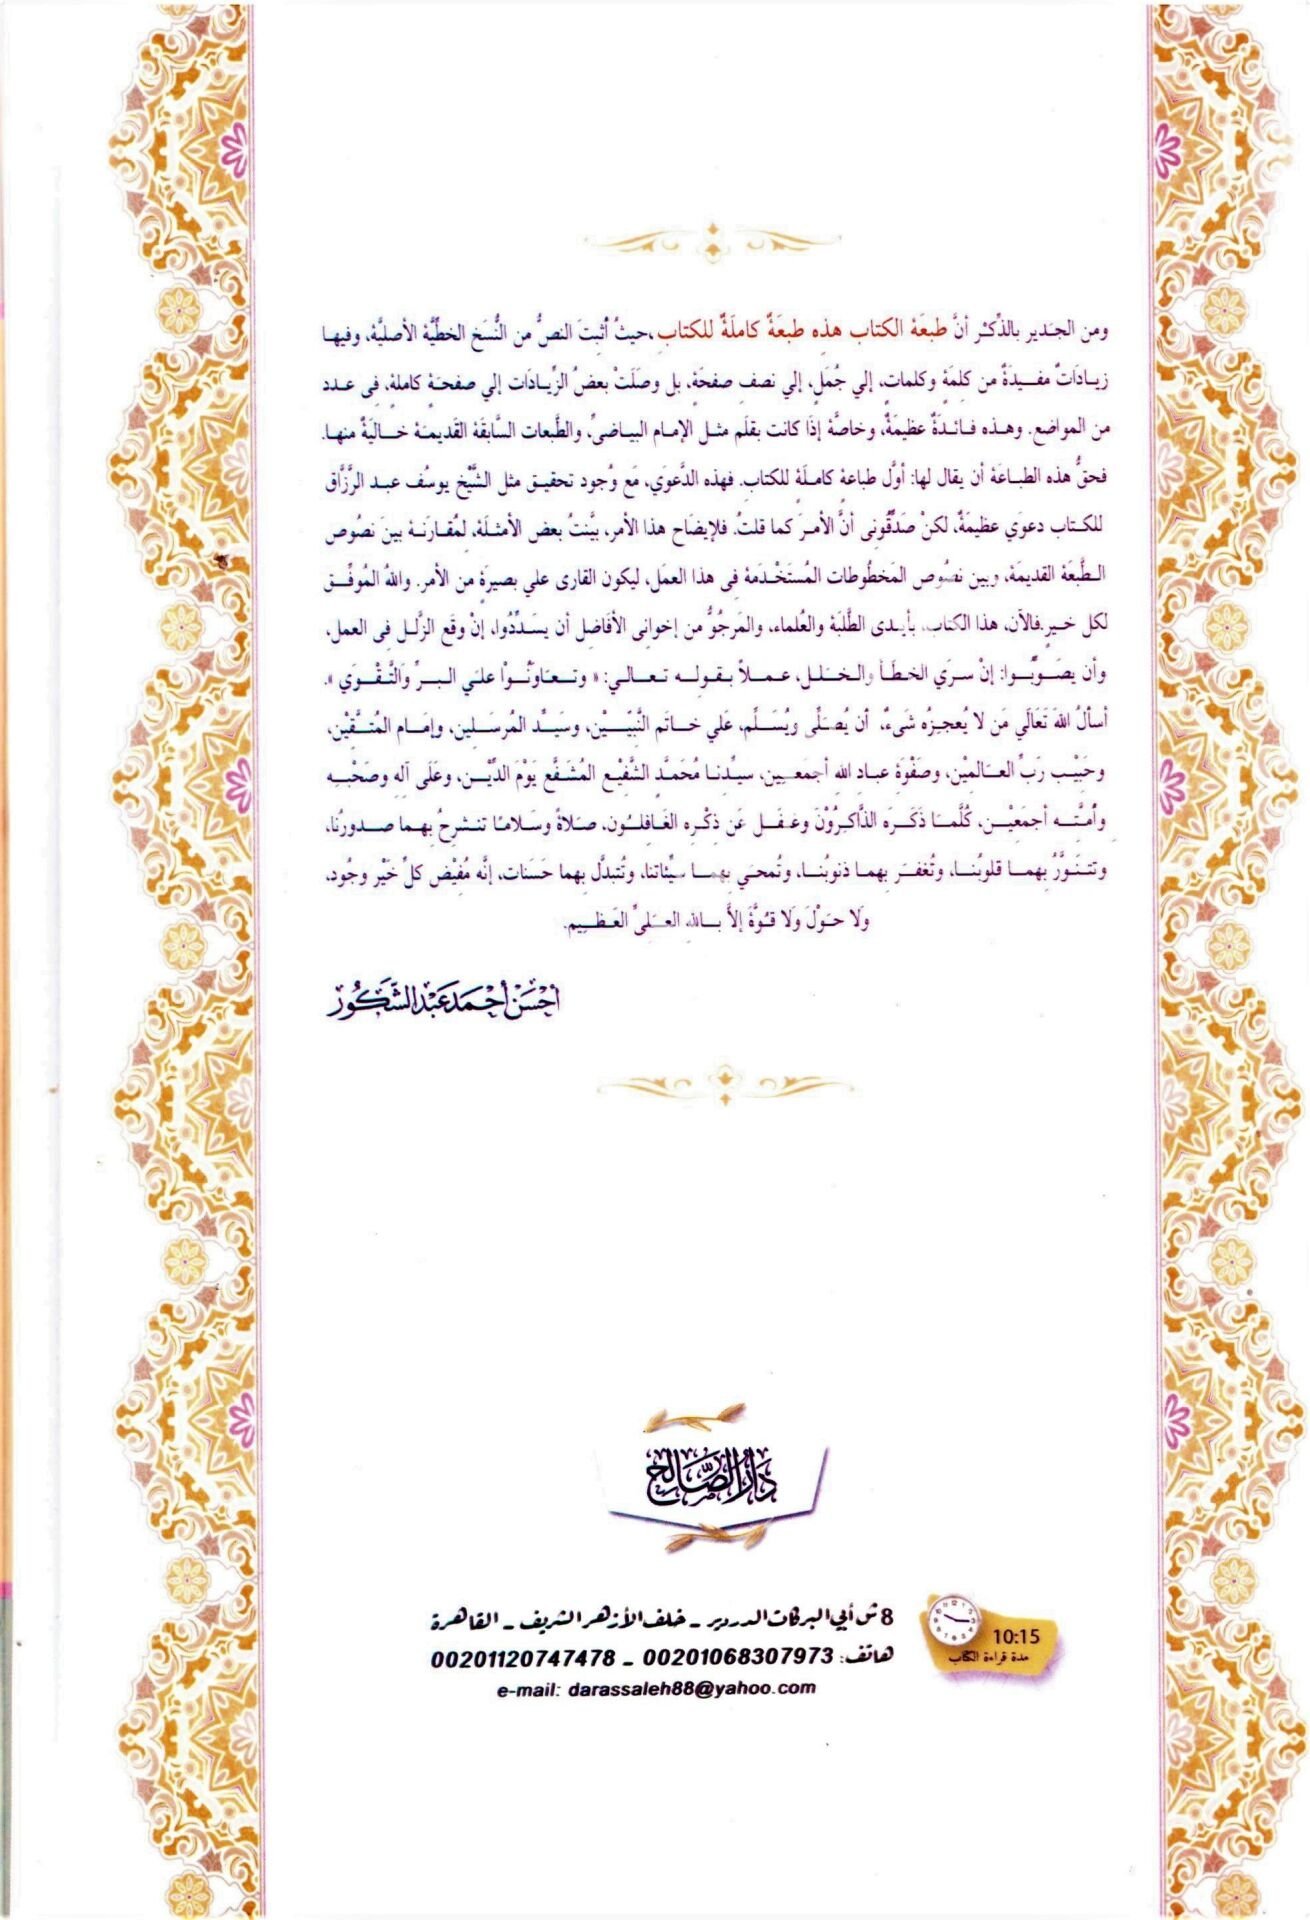 ومن الجدير بالذِّكْر أنَّ طبعَة الكتاب هذه طبعَةٌ كاملَةٌ للكتاب،حيثُ أُثبِتَ النصُّ من النُّسَخ الخطِّيَّة الأصليَّة، وفيها
زيادَاتٌ مفيدَةٌ من كلمَةٍ وكلمات، إلي جُمَلٍ، إلي نصف صفحَةٍ، بل وصلَتْ بعضُ الزِّيادَات إلي صفحَةٍ كاملَةٍ، فى عدد
من المواضع. وهذه فائدَةٌ عظيمَةٌ، وخاصَّة إذَا كانت بقلَم مثل الإمام البياضىِّ، والطَّبعات السَّابقَة القَديمَة خاليَةٌ منها.
فحقُّ هذه الطباعَة أن يقال لها: أوَّل طباعة كاملَة للكتاب. فهذه الدَّعوَي، مَع وُجود تحقيق مثل الشَّيْخ يوسُف عبد الرَّزَّاق
للكتاب دعوَي عظيمَةٌ، لكنْ صَدِّقُونى أنَّ الأمرَ كما قلتُ. فلإيضَاح هذا الأمر، بيَّنتُ بعض الأمثلَة، لمُقارَنَة بينَ نصُوص
الطَّبعَة القديمَة، وبين نصُوص المَخطُوطات المُستَخْدمَة فى هذا العمَل، ليكون القارى علي بصيرَةٍ من الأمر. واللهُ المُوفِّق
لكل خير.فالآن، هذا الكتاب، بأيدى الطَّلبَة والعُلماء، والمَرجُوُّ من إخوانى الأفاضل أن يسَدِّدُوا، إنْ وقَع الزَّلل فى العمل،
وأن يصَوِّبُوا: إنْ سرَي الخطَأ والخلل، عملاً بقوله تعالي: « وتعاوَنُوا علَي البرِّ وَالتَّقْوَي ».
أسألُ اللهَ تَعَالَي مَن لا يُعجزُه شَىءٌ، أن يُصَلِّى ويُسَلِّم، علَي خاتَم النَّبيِّيْن، وسَيِّد المُرسَلين، وإمَام المُتَّقِيْن،
وحَبِيْب رَبِّ العالَمِيْن، وصَفْوَة عباد الله أجمَعين، سيِّدنا مُحَمَّدٍ الشَّفِيْع المُشَفَّع يَوْمَ الدِّيْن، وعَلَى آله وصَحْبه
وأُمَّته أجمَعِيْن، كُلَّمَا ذَكَرَه الذَّاكرُوْنَ وغَفَل عَن ذكْره الغَافلُون، صَلاةً وسَلامًا تنشَرحُ بهما صدورُنا،
وتتنَوَّرُ بهما قلوبُنا، وتُغفَر بهما ذنوبُنا، وتُمحَي بهما سيِّئاتنا، وتُتبدَّل بهما حَسَنات، إنَّه مُفِيْض كلِّ خَيْر وجُود،
وَلا حوْلَ وَلا قوَّةَ إلاَّ بالله العَلىِّ العَظيم.
أَحْسَنْ أَحْمَد عَبْد الشَّكُور
دار الصَّالح
8 ش أبي البركات الدردير - خلف الأزهر الشريف - القاهرة
هاتف: 00201068307973 - 00201120747478
e-mail: darassaleh88@yahoo.com
10:15
مدة قراءة الكتاب